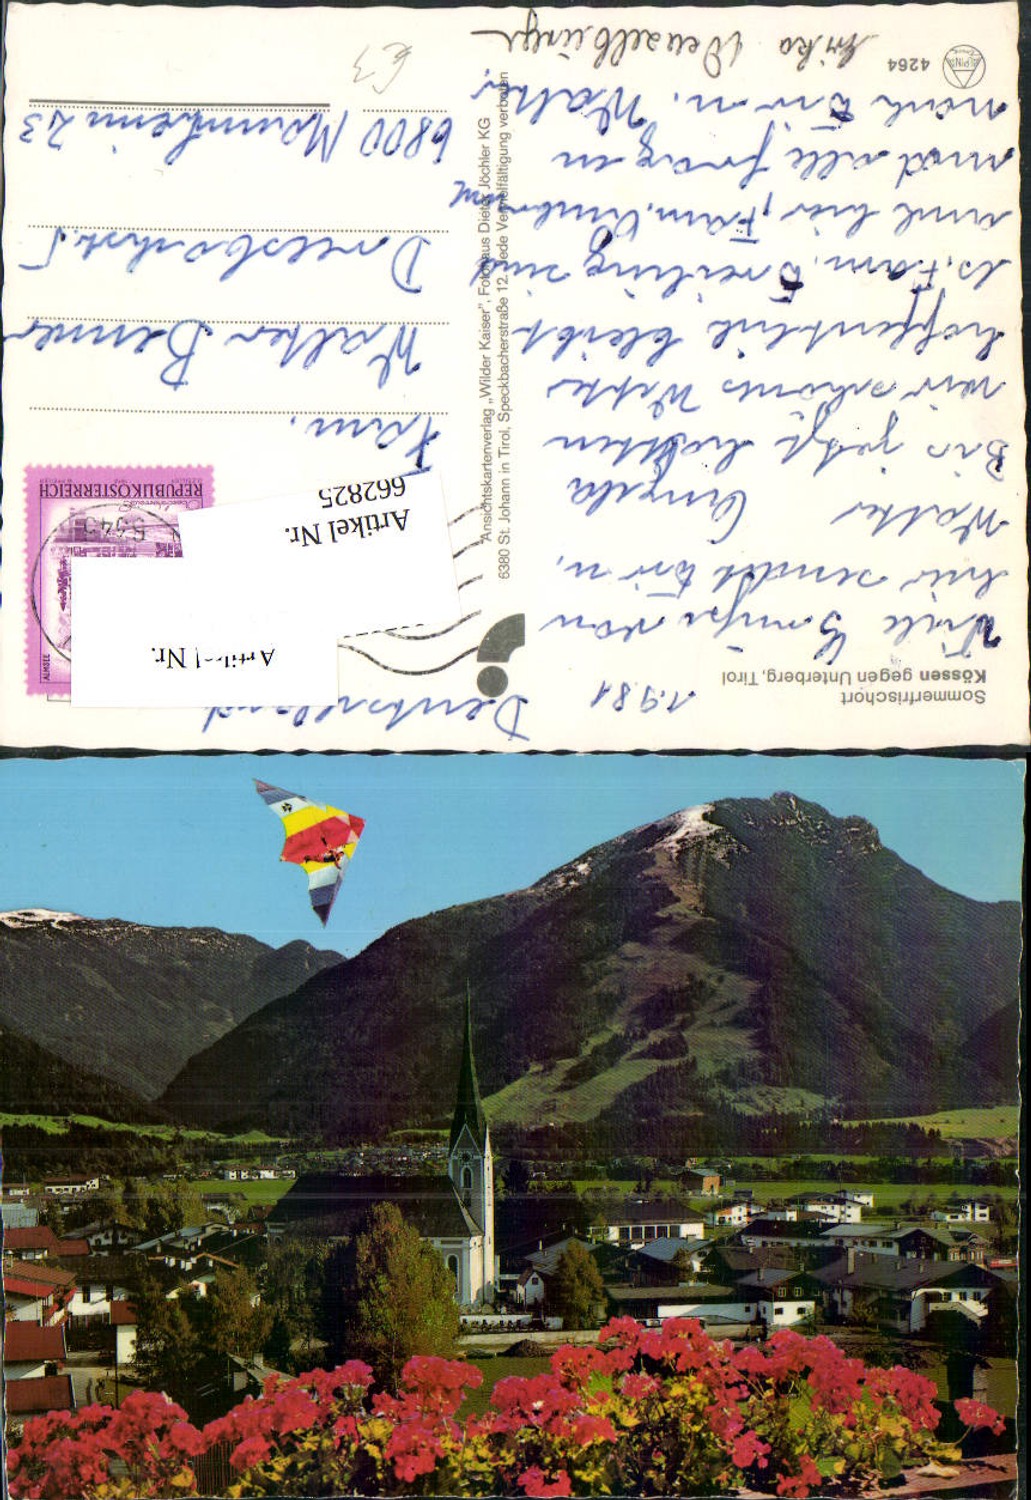 Sommerfrischort
Kössen gegen Unterberg, Tirol
1981
Viele Grüße von
hier sendet Erin,
Walter Angela
Bis jetzt hatten
wir schönes Wetter
hoffentlich bleibt
es. Fam. Breitling sind
auch hier, Fam.
und alle fragen
nach Erin u. Walter,
4264
ALPINA
Ansichtskartenverlag „Wilder Kaiser", Fotohaus Dieter Jöchler KG
6380 St. Johann in Tirol, Speckbacherstraße 12. Jede Vervielfältigung verboten
REPUBLIK ÖSTERREICH
ALMSEE
Artikel Nr.
662825
Artikel Nr.
Fam.
Walter Benner
6800 Mannheim 23
Deutschland
€3